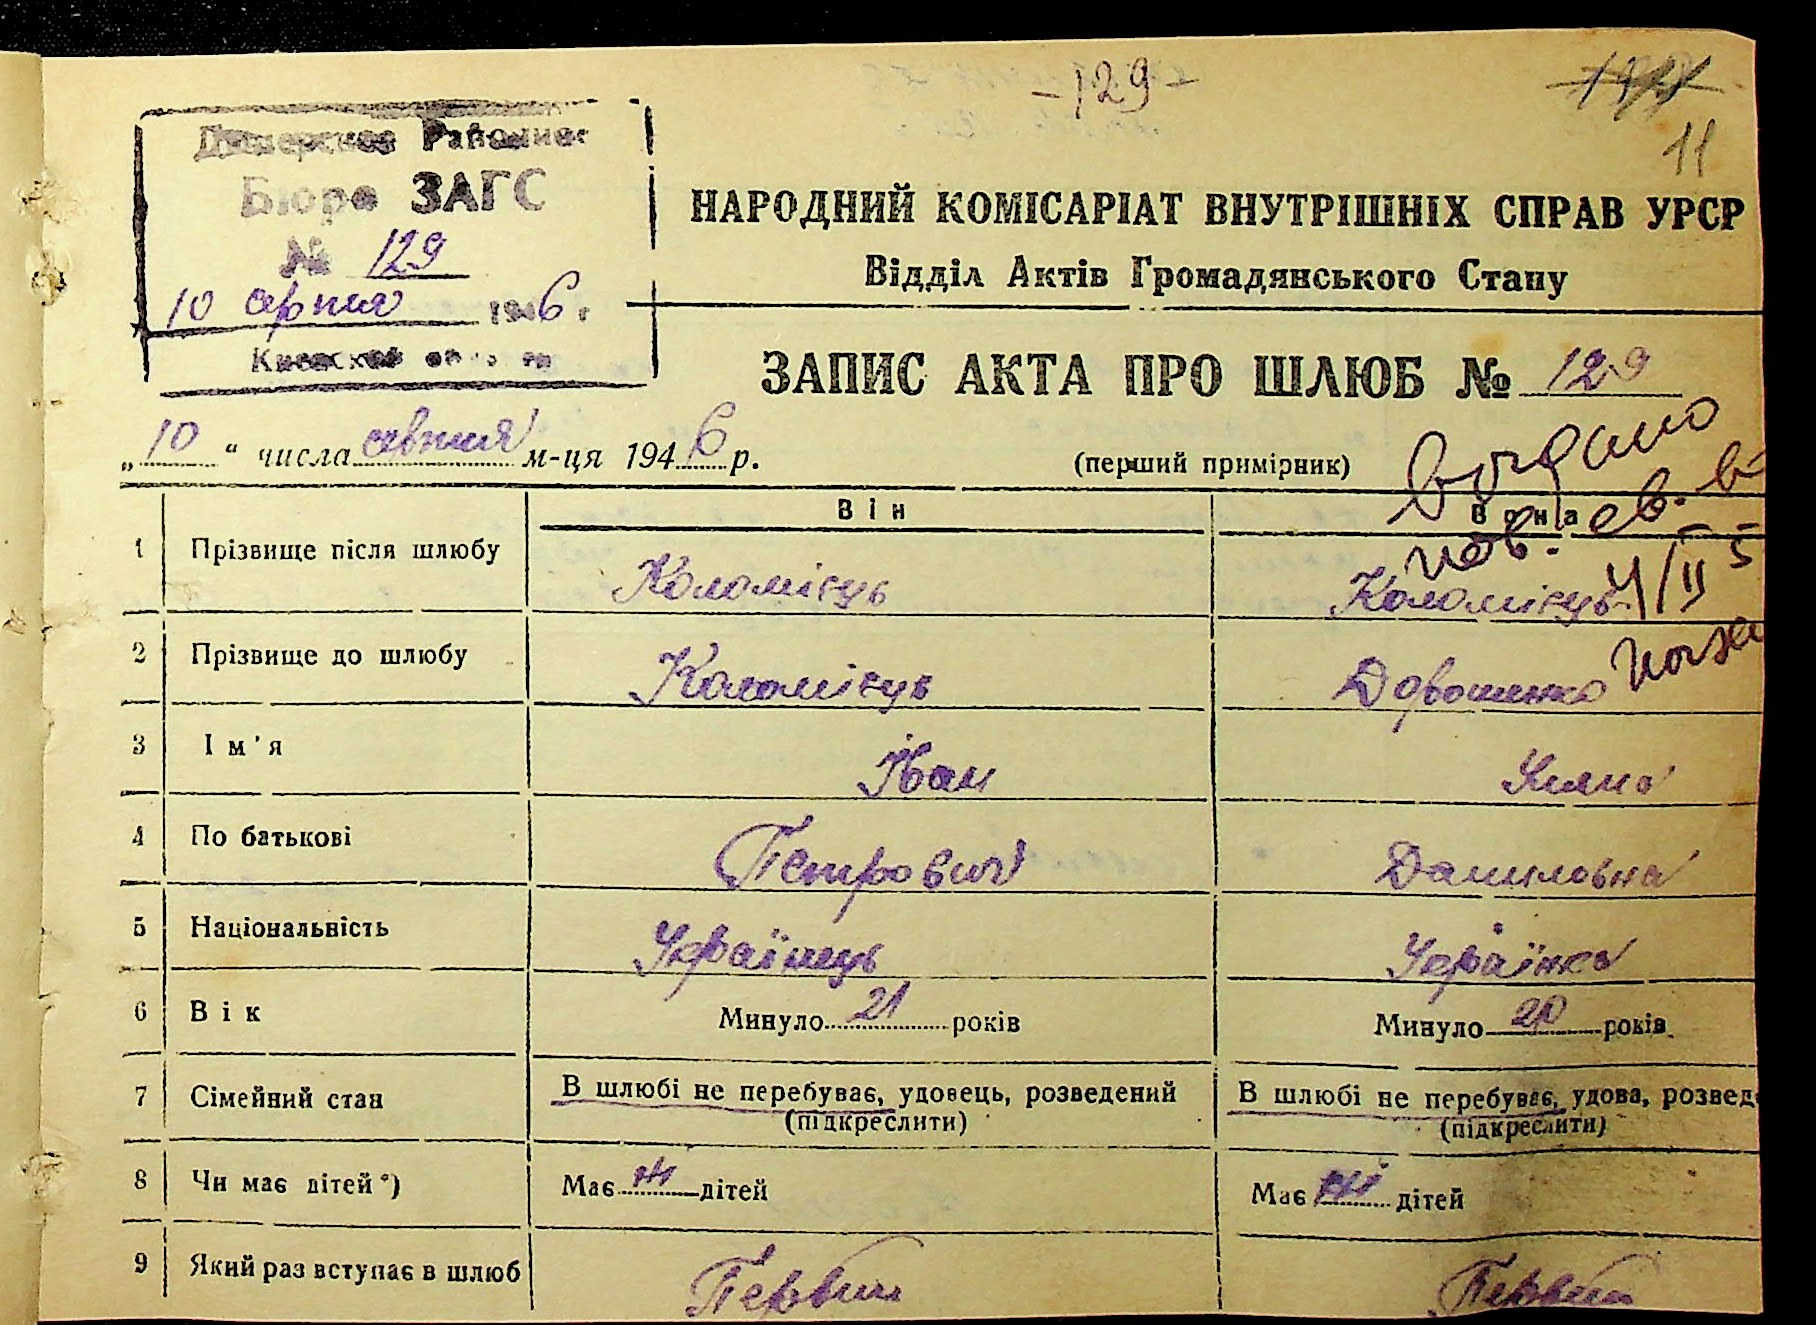 -129-
11
Дымерское Районное
Бюро ЗАГС
№ 129
10 серпня 1946 г
Киевской области
НАРОДНИЙ КОМІСАРІАТ ВНУТРІШНІХ СПРАВ УРСР
Відділ Актів Громадянського Стану
ЗАПИС АКТА ПРО ШЛЮБ № 129
„10“ числа серпня м-ця 1946 р.
(перший примірник)
Видано
пов. св. в
4/II 5
Він Вона
1 Прізвище після шлюбу Коломієць Коломієць
2 Прізвище до шлюбу Коломієць Дорошенко
3 Ім'я Іван Уляна
4 По батькові Петрович Даниловна
5 Національність Українець Українка
6 Вік Минуло 21 років Минуло 20 років
7 Сімейний стан В шлюбі не перебуває, удовець, розведений В шлюбі не перебуває, удова, розвед
(підкреслити) (підкреслити)
8 Чи має дітей*) Має ні дітей Має ні дітей
9 Який раз вступає в шлюб Первий Первий